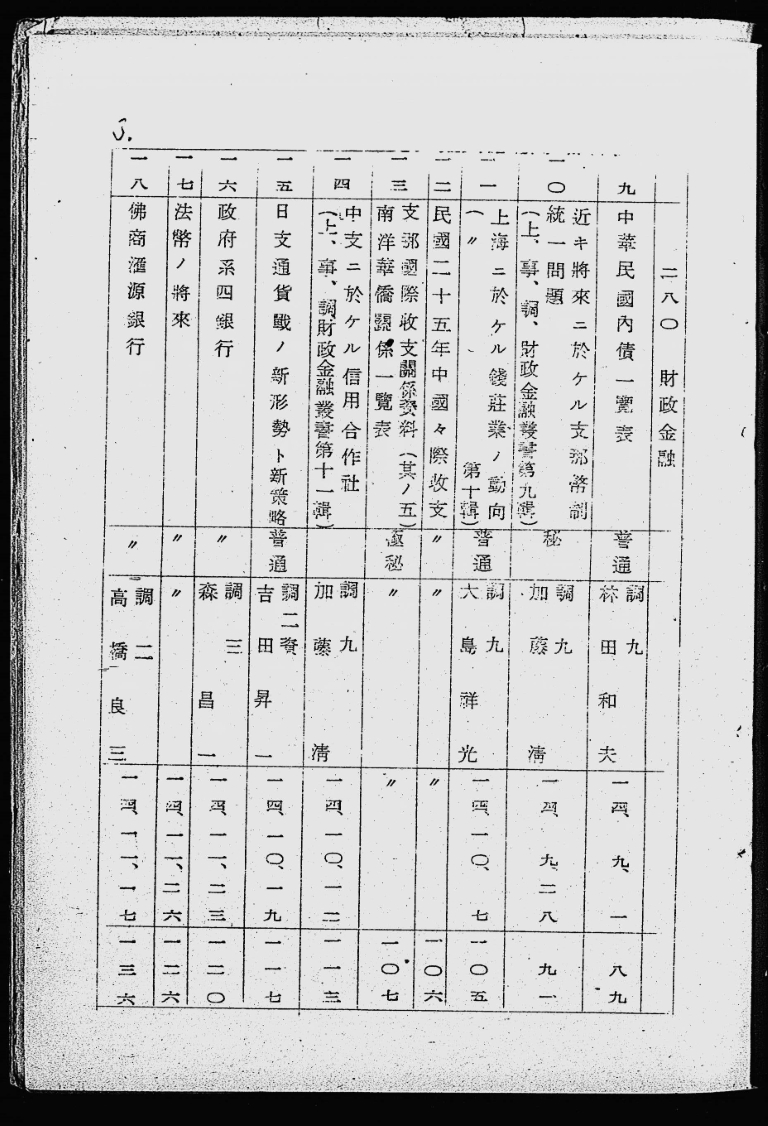 二八〇 財政金融
九 中華民國內債一覽表 普通 調九 林田和夫 一四、九、一 八九
一〇 近キ將來ニ於ケル支那幣制
統一問題
(上、事、調、財政金融叢書第九輯) 秘 調九 加藤淸 一四、九、二八 九一
一一 上海ニ於ケル錢莊業ノ動向
(〃 第十輯) 普通 調九 大島祥光 一四、一〇、七 一〇五
一二 民國二十五年中國々際收支 〃 〃 〃 一〇六
一三 支那國際收支關係資料(其ノ五)
南洋華僑關係一覽表 極秘 〃 〃 一〇七
一四 中支ニ於ケル信用合作社
(上、事、調財政金融叢書第十一輯) 調九 加藤淸 一四、一〇、一二 一一三
一五 日支通貨戰ノ新形勢ト新策略 普通 調二資 吉田昇一 一四、一〇、一九 一一七
一六 政府系四銀行 〃 調三 森昌一 一四、一一、二三 一二〇
一七 法幣ノ將來 〃 〃 一四、一一、二六 一二六
一八 佛商滙源銀行 〃 調二 高橋良三 一四、一一、一七 一三六